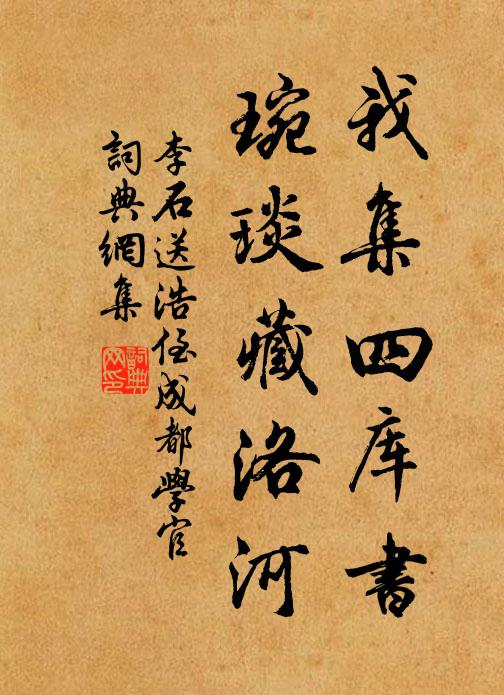 我集四库書
琬琰藏洛河
李石送浩侄成都學官
詞典網集
詞典網印